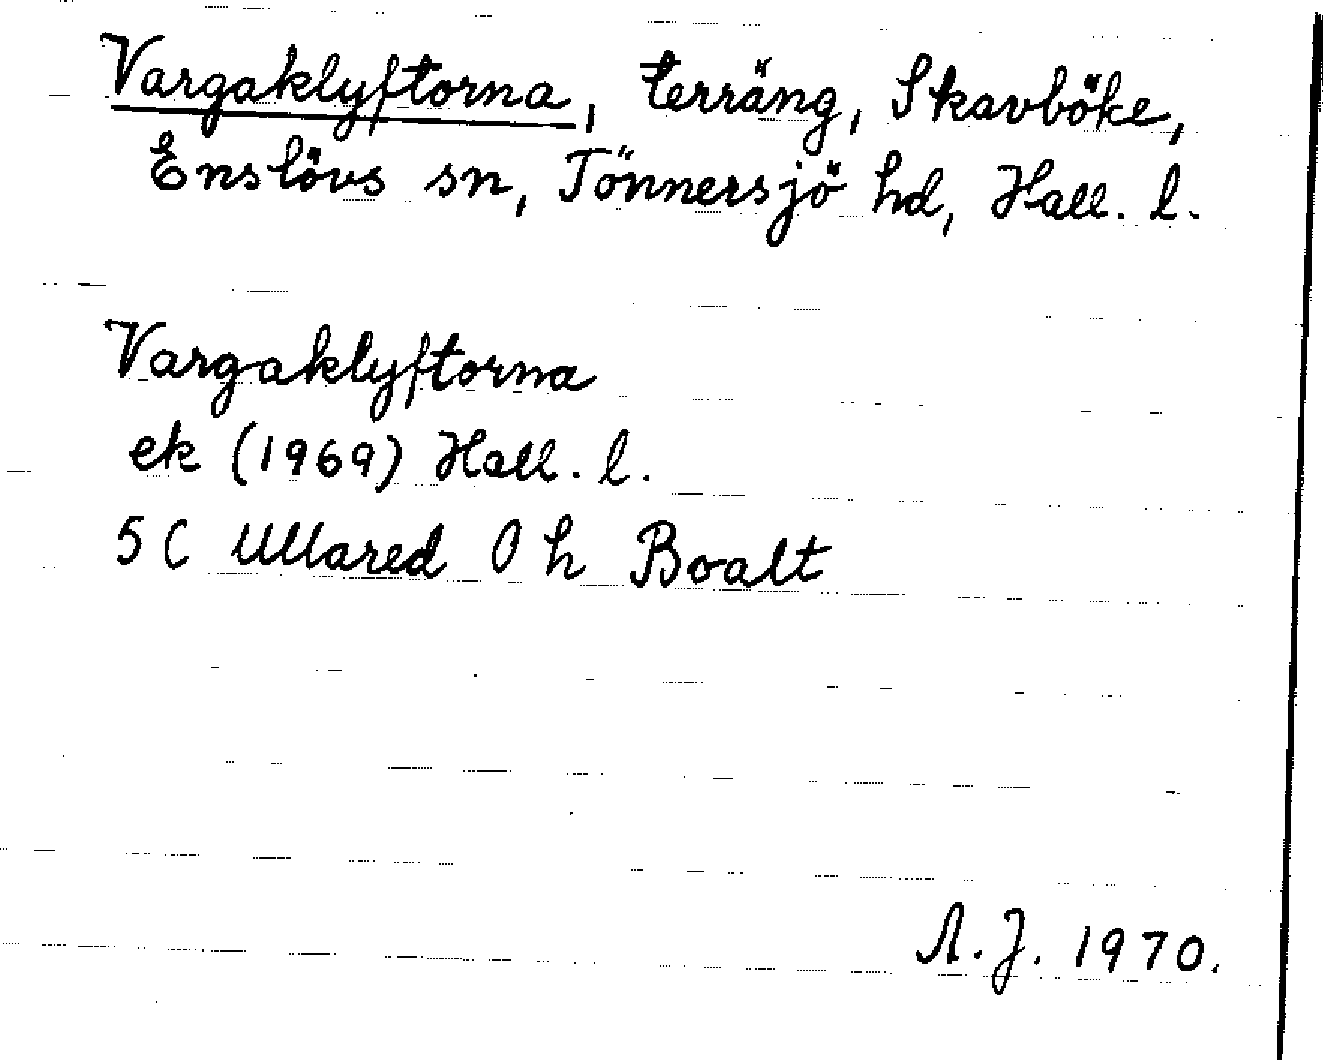 Vargaklyftorna, terräng, Skavböke,
Enslövs sn, Tönnersjö hd, Hall. l.
Vargaklyftorna
ek (1969) Hall. l.
5 C Ullared 0 h Boalt
A. J. 1970.